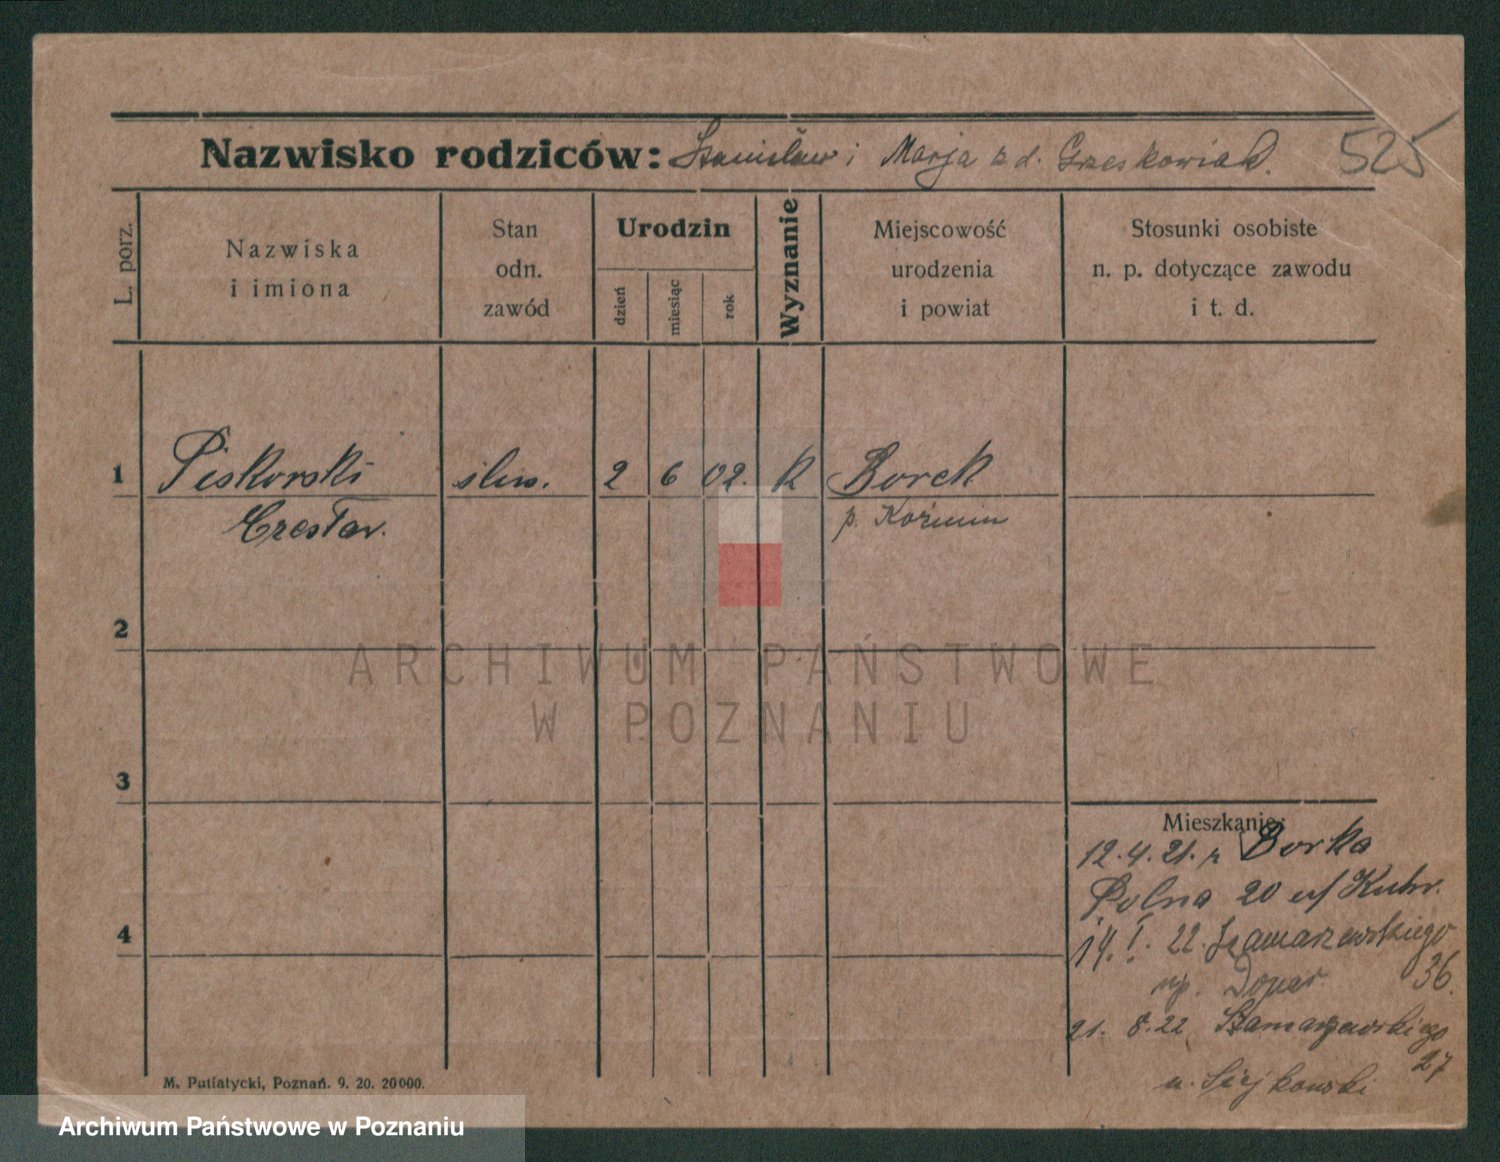 Nazwisko rodziców: Stanisław i Marja z d. Grześkowiak.
525
L. porz.
Nazwiska
i imiona
Stan
odn.
zawód
Urodzin
dzień
miesiąc
rok
Wyznanie
Miejscowość
urodzenia
i powiat
Stosunki osobiste
n. p. dotyczące zawodu
i t. d.
1 Piskorski ślus. 2 6 02. k Borek
Czesław. p. Koźmin
2
ARCHIWUM PAŃSTWOWE
W POZNANIU
3
Mieszkanie:
12.4.21. z Borka
Polna 20 u/ Kuhr.
4
14. I. 22. Szamarzewskiego
36.
21. 8. 22 Szamarzewskiego
27
M. Putiatycki, Poznań. 9. 20. 20000.
Archiwum Państwowe w Poznaniu